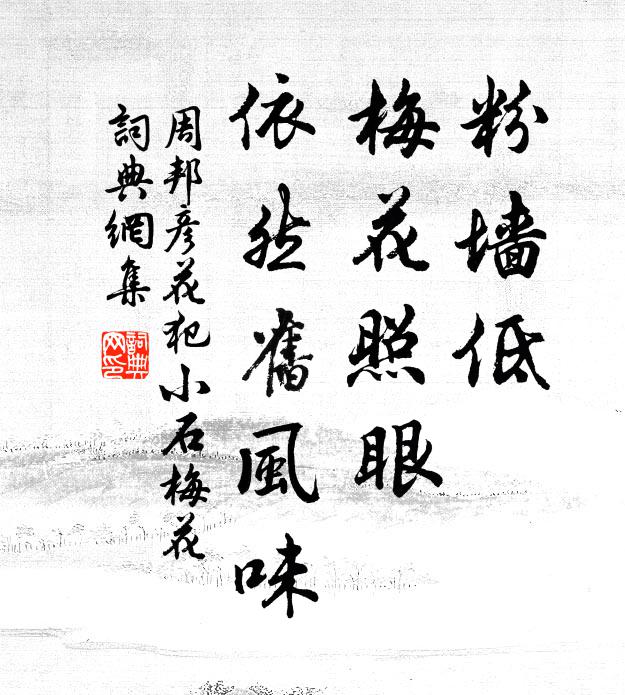 粉墙低
梅花照眼
依然舊風味
周邦彦花犯小石梅花
詞典網集
詞典
网印